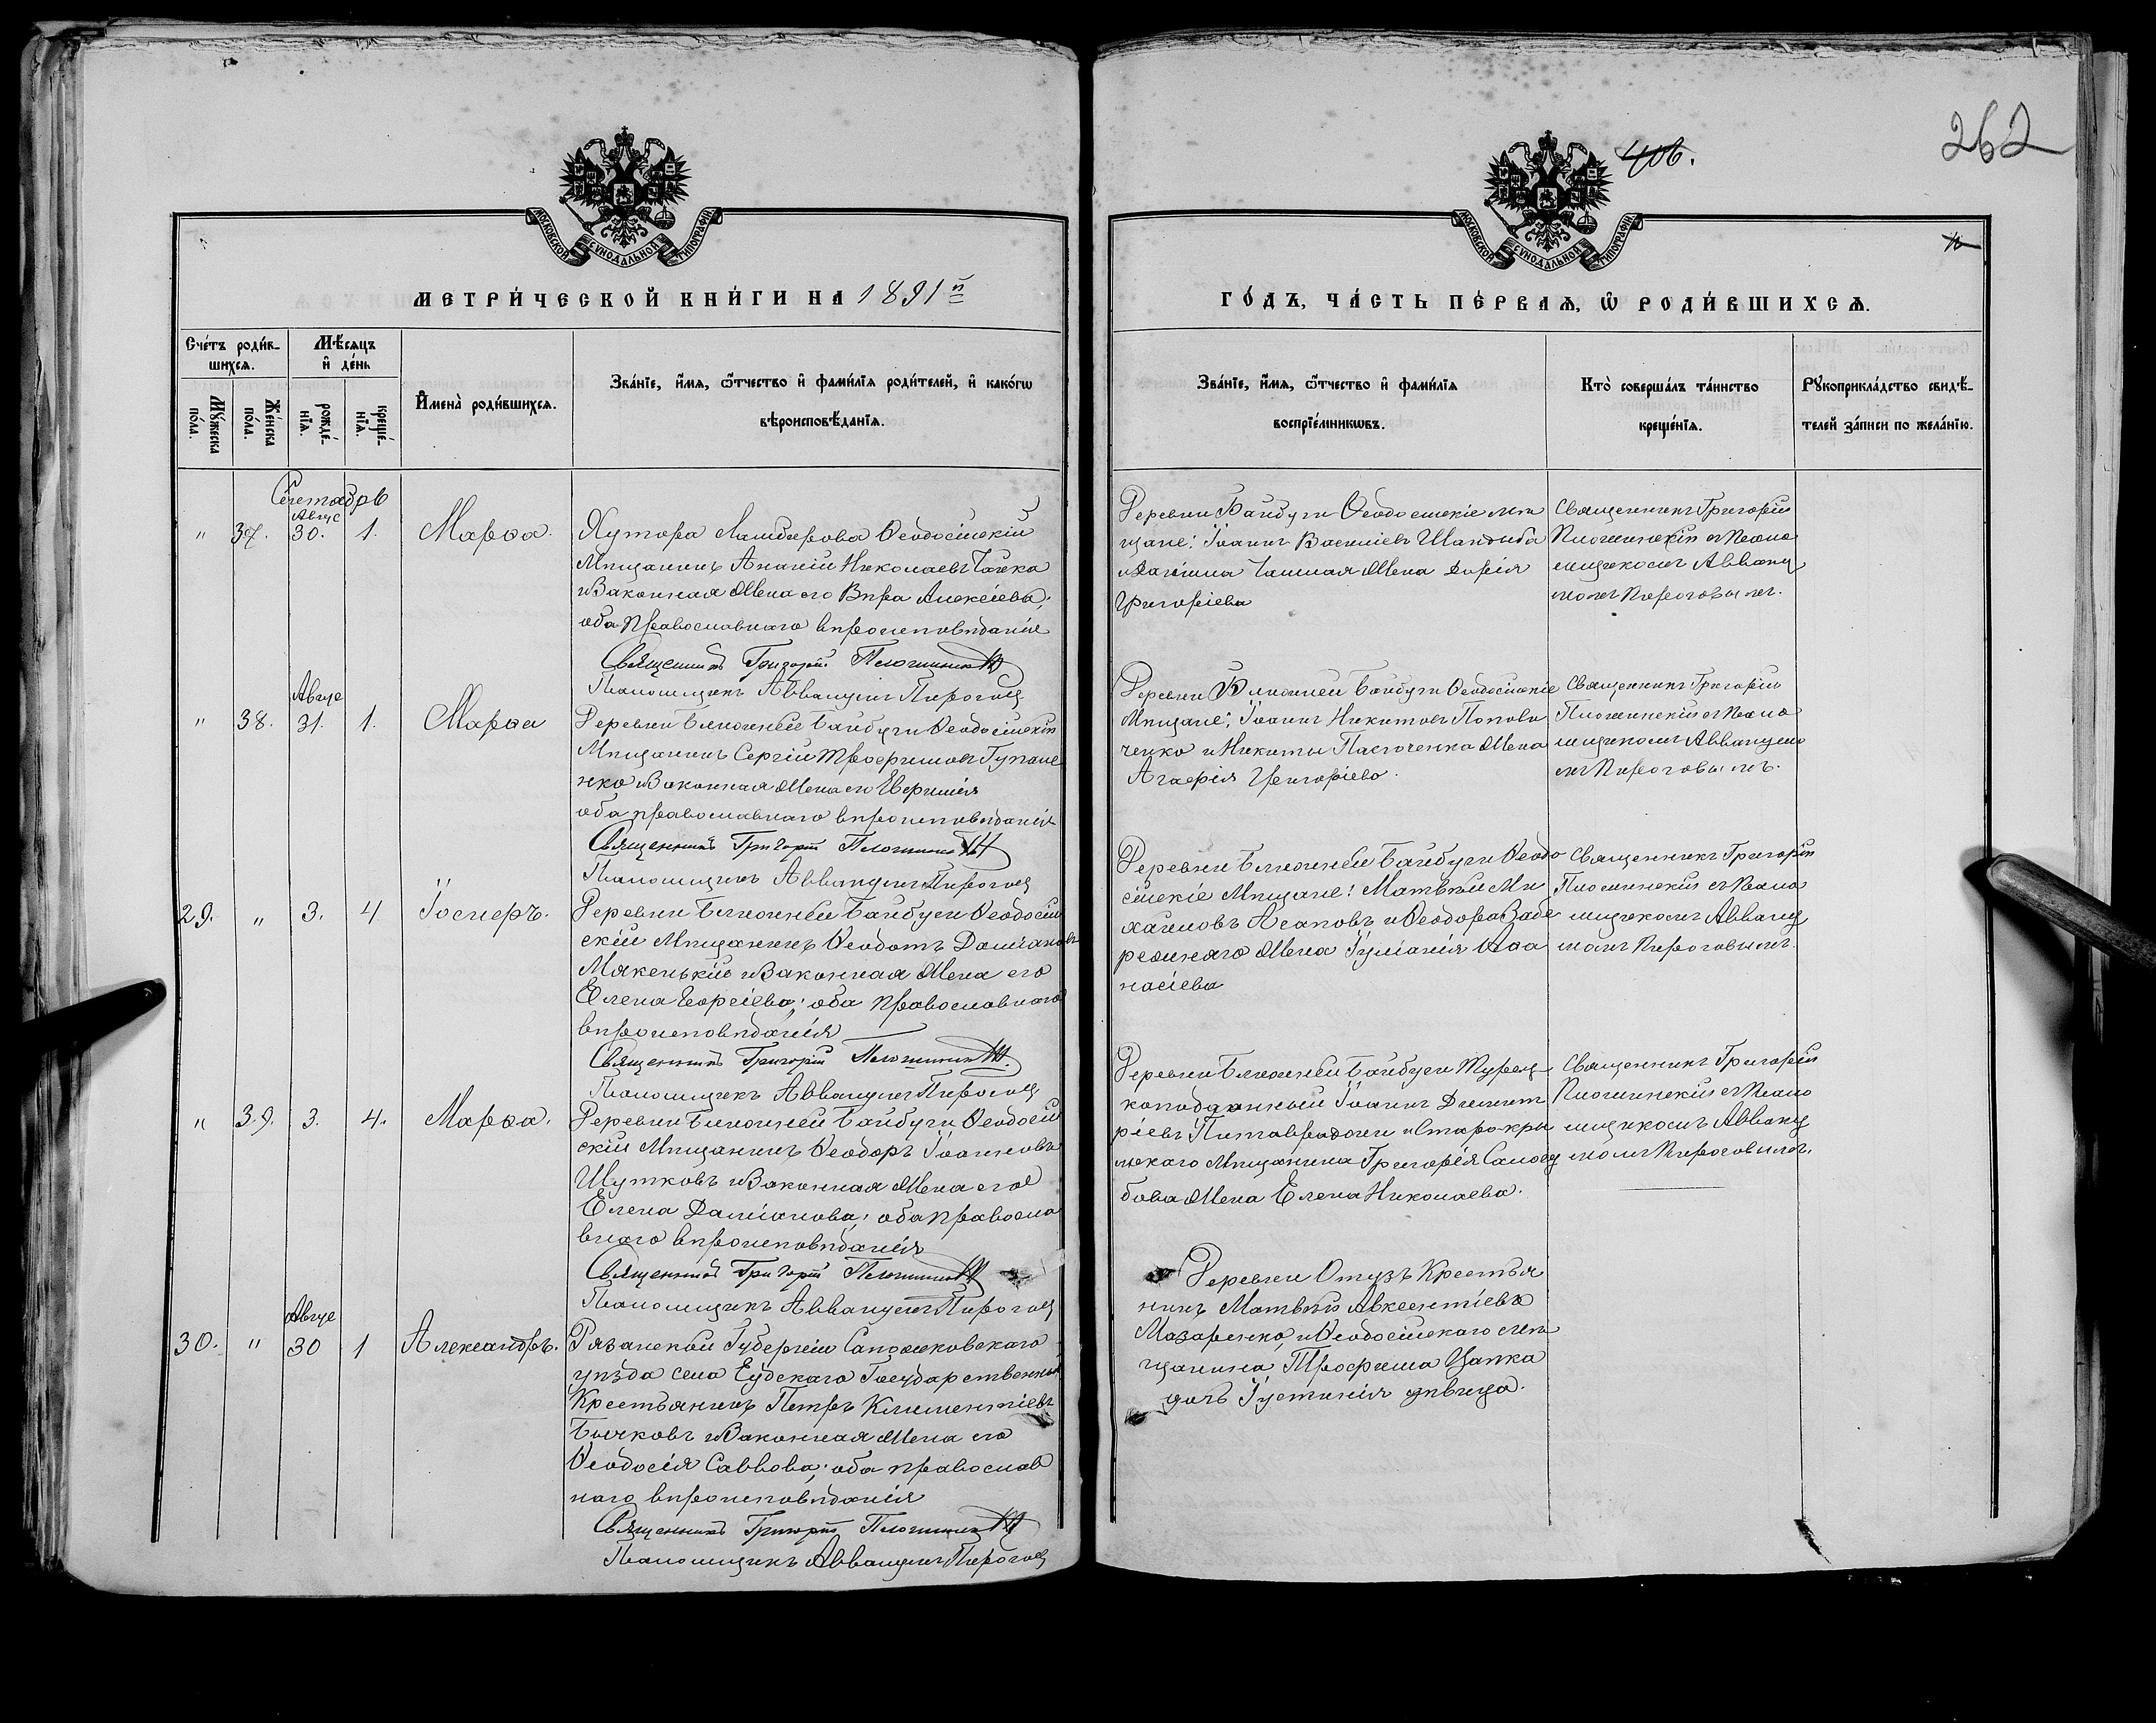 406.
262
МОСКОВСКОЙ СУНОДАЛЬНОЙ ТИПОГРАФІИ
МОСКОВСКОЙ СУНОДАЛЬНОЙ ТИПОГРАФІИ
МЕТРИ́ЧЕСКОЙ КНИ́ГИ НА 1891й
ГО́ДЪ, ЧА́СТЬ ПЕ́РВАѦ, Ѡ РОДИ́ВШИХСѦ.
Сче́тъ роди́в-
шихсѧ.
Мѣ́сѧцъ
и҆ де́нь
Мꙋ́жеска
по́ла.
Же́нска
по́ла.
рожде́-
нїѧ.
креще́-
нїѧ.
И҆мена̀ роди́вшихсѧ.
Зва́нїе, и҆́мѧ, ѻ҆́тчество и҆ фами́лїѧ роди́телей, и҆ како́гѡ
вѣроисповѣ́данїѧ.
Зва́нїе, и҆́мѧ, ѻ҆́тчество и҆ фами́лїѧ
воспрїе́мникѡвъ.
Кто̀ соверша́лъ та́инство
креще́нїѧ.
Рꙋкоприкла́дство свидѣ́-
телей за́писи по жела́нїю.
Сентябрь
Авгус
" 37. 30. 1. Марѳа.
Хутора Ѳеодосійскій
Мѣщанинъ Ананій Николаевъ Чайка
и Законная Жена его Вѣра Алексіева;
оба Православнаго вѣроисповѣданія
Священникъ Григорій
Псаломщикъ Аввакумъ Пироговъ
Деревни Байбуги Ѳеодосійскіе мѣ
щане: Іоаннъ Василіевъ Шандыба
Жена Дарія
Григоріева
Священникъ Григорій
съ Псало
мщикомъ Авваку
момъ Пироговымъ.
Авгус
" 38. 31. 1. Марѳа
Деревни Ближней Байбуги Ѳеодосійскій
Мѣщанинъ Сергій Трофимовъ Гупале
нко и Законная Жена его Евфимія
оба православнаго вѣроисповѣданія
Священникъ Григорій
Псаломщикъ Аввакумъ Пироговъ
Деревни Ближней Байбуги Ѳеодосійскіе
Мѣщане: Іоаннъ Никитовъ Попови
ченко и Никиты Пасюченка Жена
Агафія Григоріева.
Священникъ Григорій
съ Псало
мщикомъ Аввакумо
мъ Пироговымъ.
29. " 3. 4 Іосифъ.
Деревни Ближней Байбуги Ѳеодосій
скій Мѣщанинъ Ѳеодотъ Даміановъ
Мякенькій и Законная Жена его
Елена Георгіева; оба православнаго
вѣроисповѣданія
Священникъ Григорій
Псаломщикъ Аввакумъ Пироговъ
Деревни Ближней Байбуги Ѳеодо
сійскіе Мѣщане: Матвѣй Ми
хаиловъ Асаповъ и Ѳеодора Забе
режняго Жена Іуліанія Аѳа
насіева
Священникъ Григорій
съ Псало
мщикомъ Авваку
момъ Пироговымъ.
" 39. 3. 4. Марѳа.
Деревни Ближней Байбуги Ѳеодосій
скій Мѣщанинъ Ѳеодоръ Іоанновъ
Шутковъ и Законная Жена его
Елена Даміанова; оба правосла
внаго вѣроисповѣданія
Священникъ Григорій
Псаломщикъ Аввакумъ Пироговъ
Деревни Ближней Байбуги Турец
коподданный Іоаннъ Димит
ріевъ и Старокры
мскаго Мѣщанина Григорія Самсоу
бова Жена Елена Николаева.
Священникъ Григорій
съ Псало
мщикомъ Авваку
момъ Пироговымъ.
Авгус
30. " 30 1 Александръ.
Рязанской Губерніи Сапожковскаго
уѣзда села Государственный
Крестьянинъ Петръ Климентіевъ
Бычковъ и Законная Жена его
Ѳеодосія Саввова; оба православ
наго вѣроисповѣданія
Священникъ Григорій
Псаломщикъ Аввакумъ Пироговъ
Деревни Отузъ Крестья
нинъ Матвѣй Авксентіевъ
Мазаренко, и Ѳеодосійскаго мѣ
щанина Трофима Цапка
дочь Іустинія дѣвица.